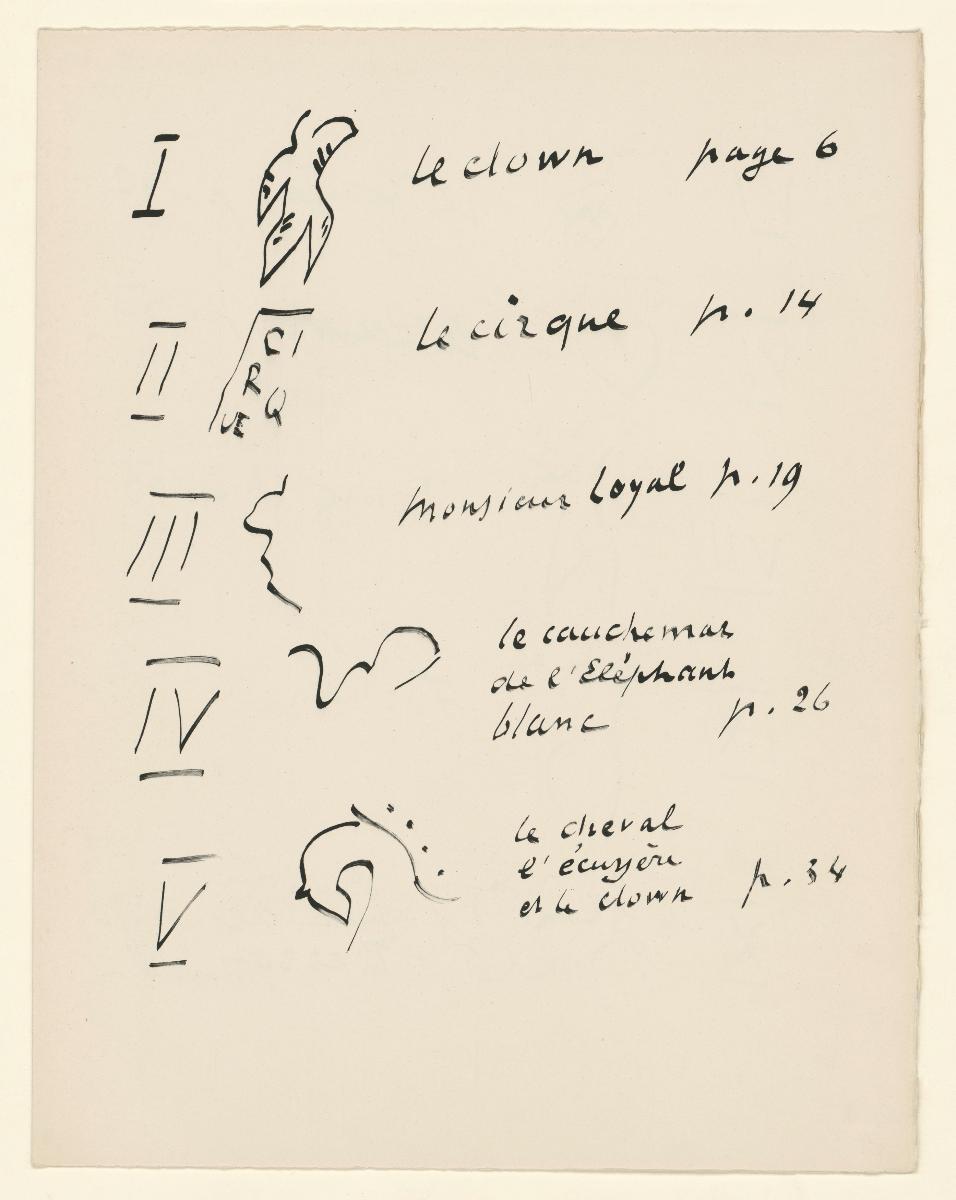 I le clown page 6
II CI
R Q
UE
le cirque p. 14
III Monsieur Loyal p. 19
IV le cauchemar
de l'Eléphant
blanc p. 26
V le cheval
l'écuyère
et le clown p. 34